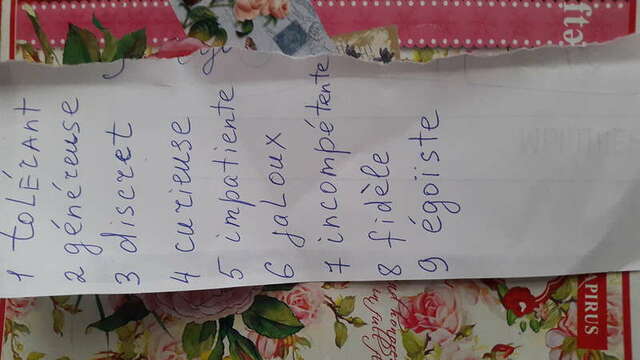 1 toLÉRAnt
2 généreuse
3 discret
4 curieuse
5 impatiente
6 jaLoux
7 incompétente
8 fidèle
9 égoïste
PAPIRUS